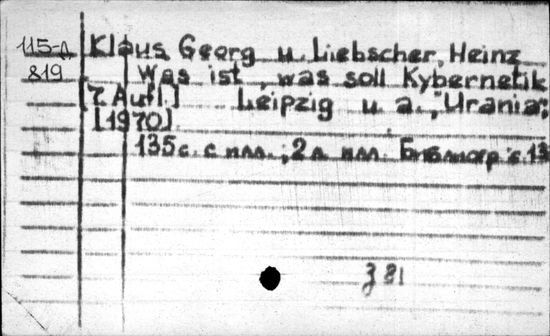 115-д Klaus Georg u. Liebscher, Heinz
819 Was ist, was soll Kybernetik
[7. Aufl.] Leipzig u. a., "Urania",
[1970]
135 с. с илл.; 2 л илл. Библиогр с. 13
З 81